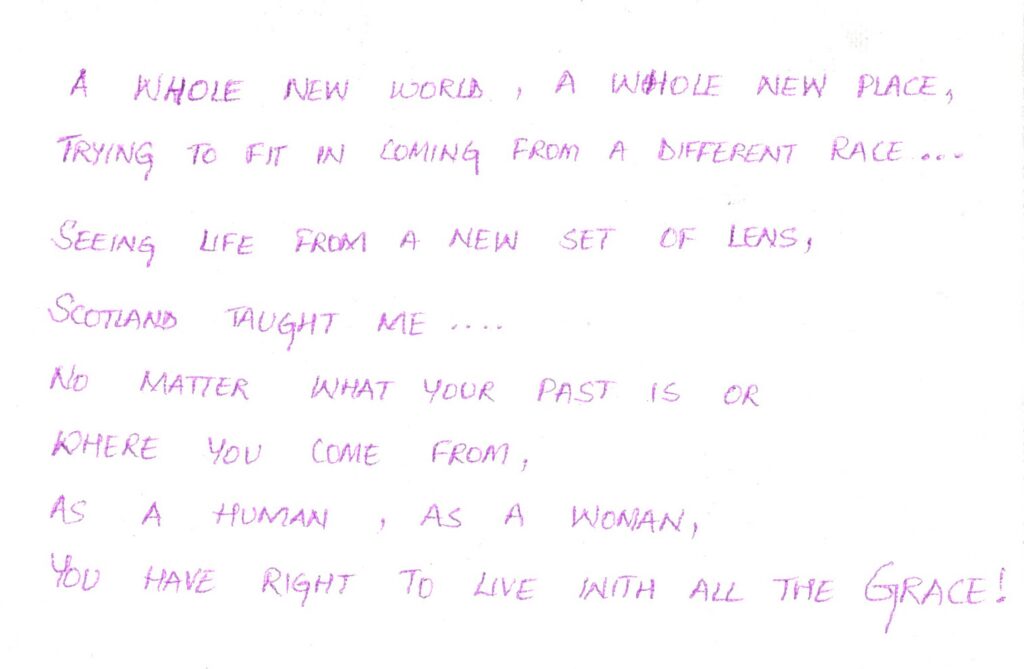 A WHOLE NEW WORLD, A WHOLE NEW PLACE,
TRYING TO FIT IN COMING FROM A DIFFERENT RACE...
SEEING LIFE FROM A NEW SET OF LENS,
SCOTLAND TAUGHT ME....
NO MATTER WHAT YOUR PAST IS OR
WHERE YOU COME FROM,
AS A HUMAN, AS A WOMAN,
YOU HAVE RIGHT TO LIVE WITH ALL THE GRACE!